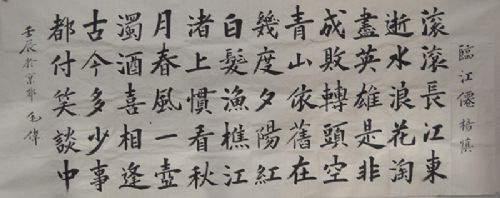 臨江僊 楊慎
滾滾長江東
逝水浪花淘
盡英雄是非
成敗轉頭空
青山依舊在
幾度夕陽紅
白髮漁樵江
渚上慣看秋
月春風一壺
濁酒喜相逢
古今多少事
都付笑談中
壬辰於京華 毛偉